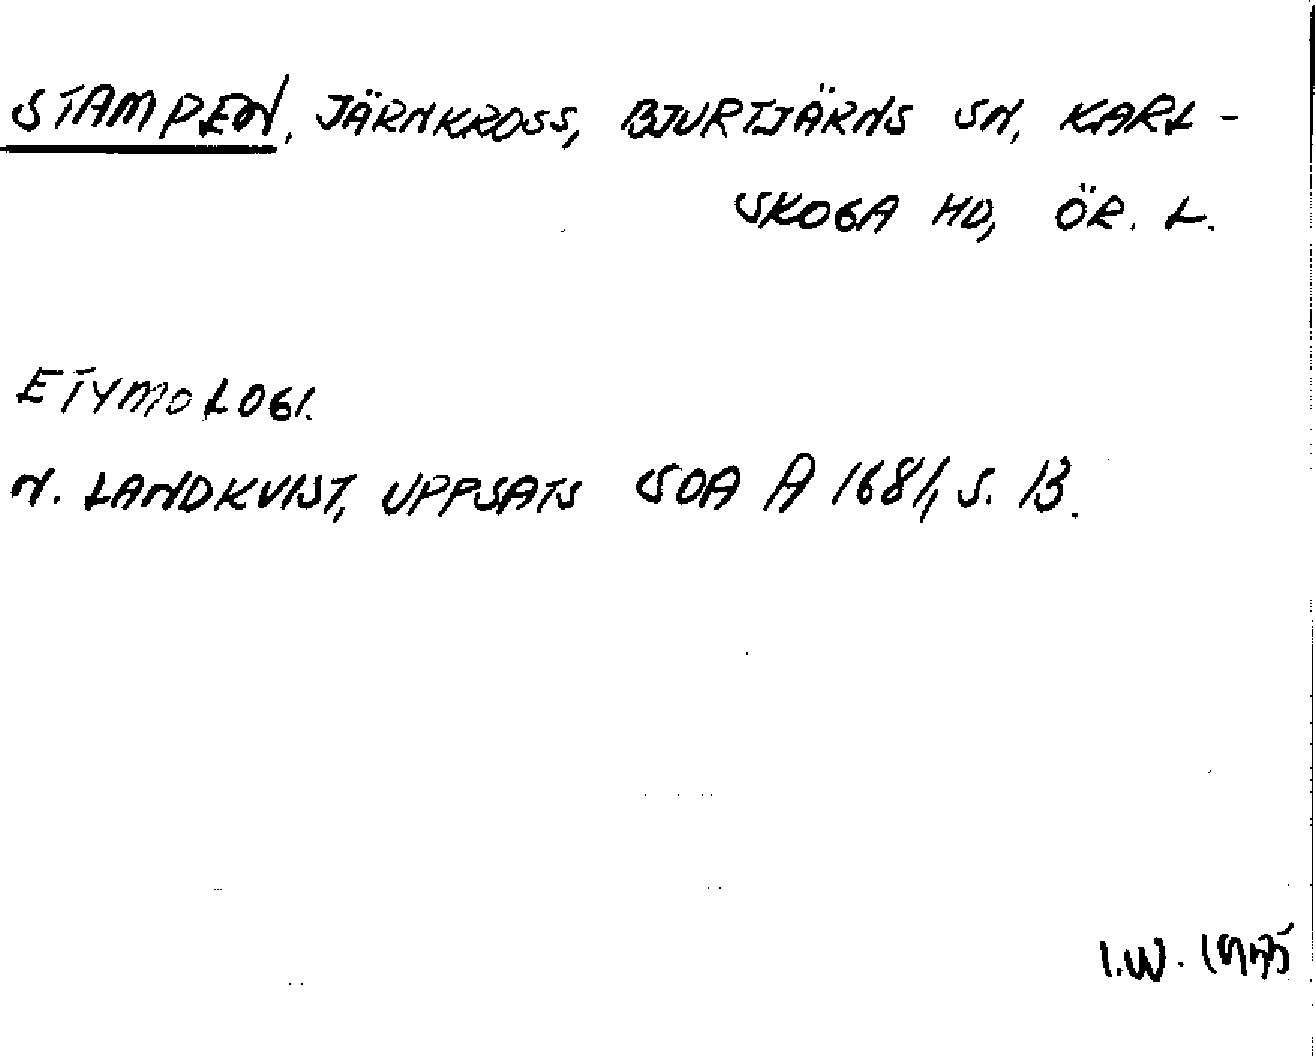 STAMPEN, JÄRNKROSS, BJURTJÄRNS SN, KARL-
SKOGA HD, ÖR. L.
ETYMOLOGI.
N. LANDKVIST, UPPSATS SOA A 1681, S. 13.
I.W. 1975